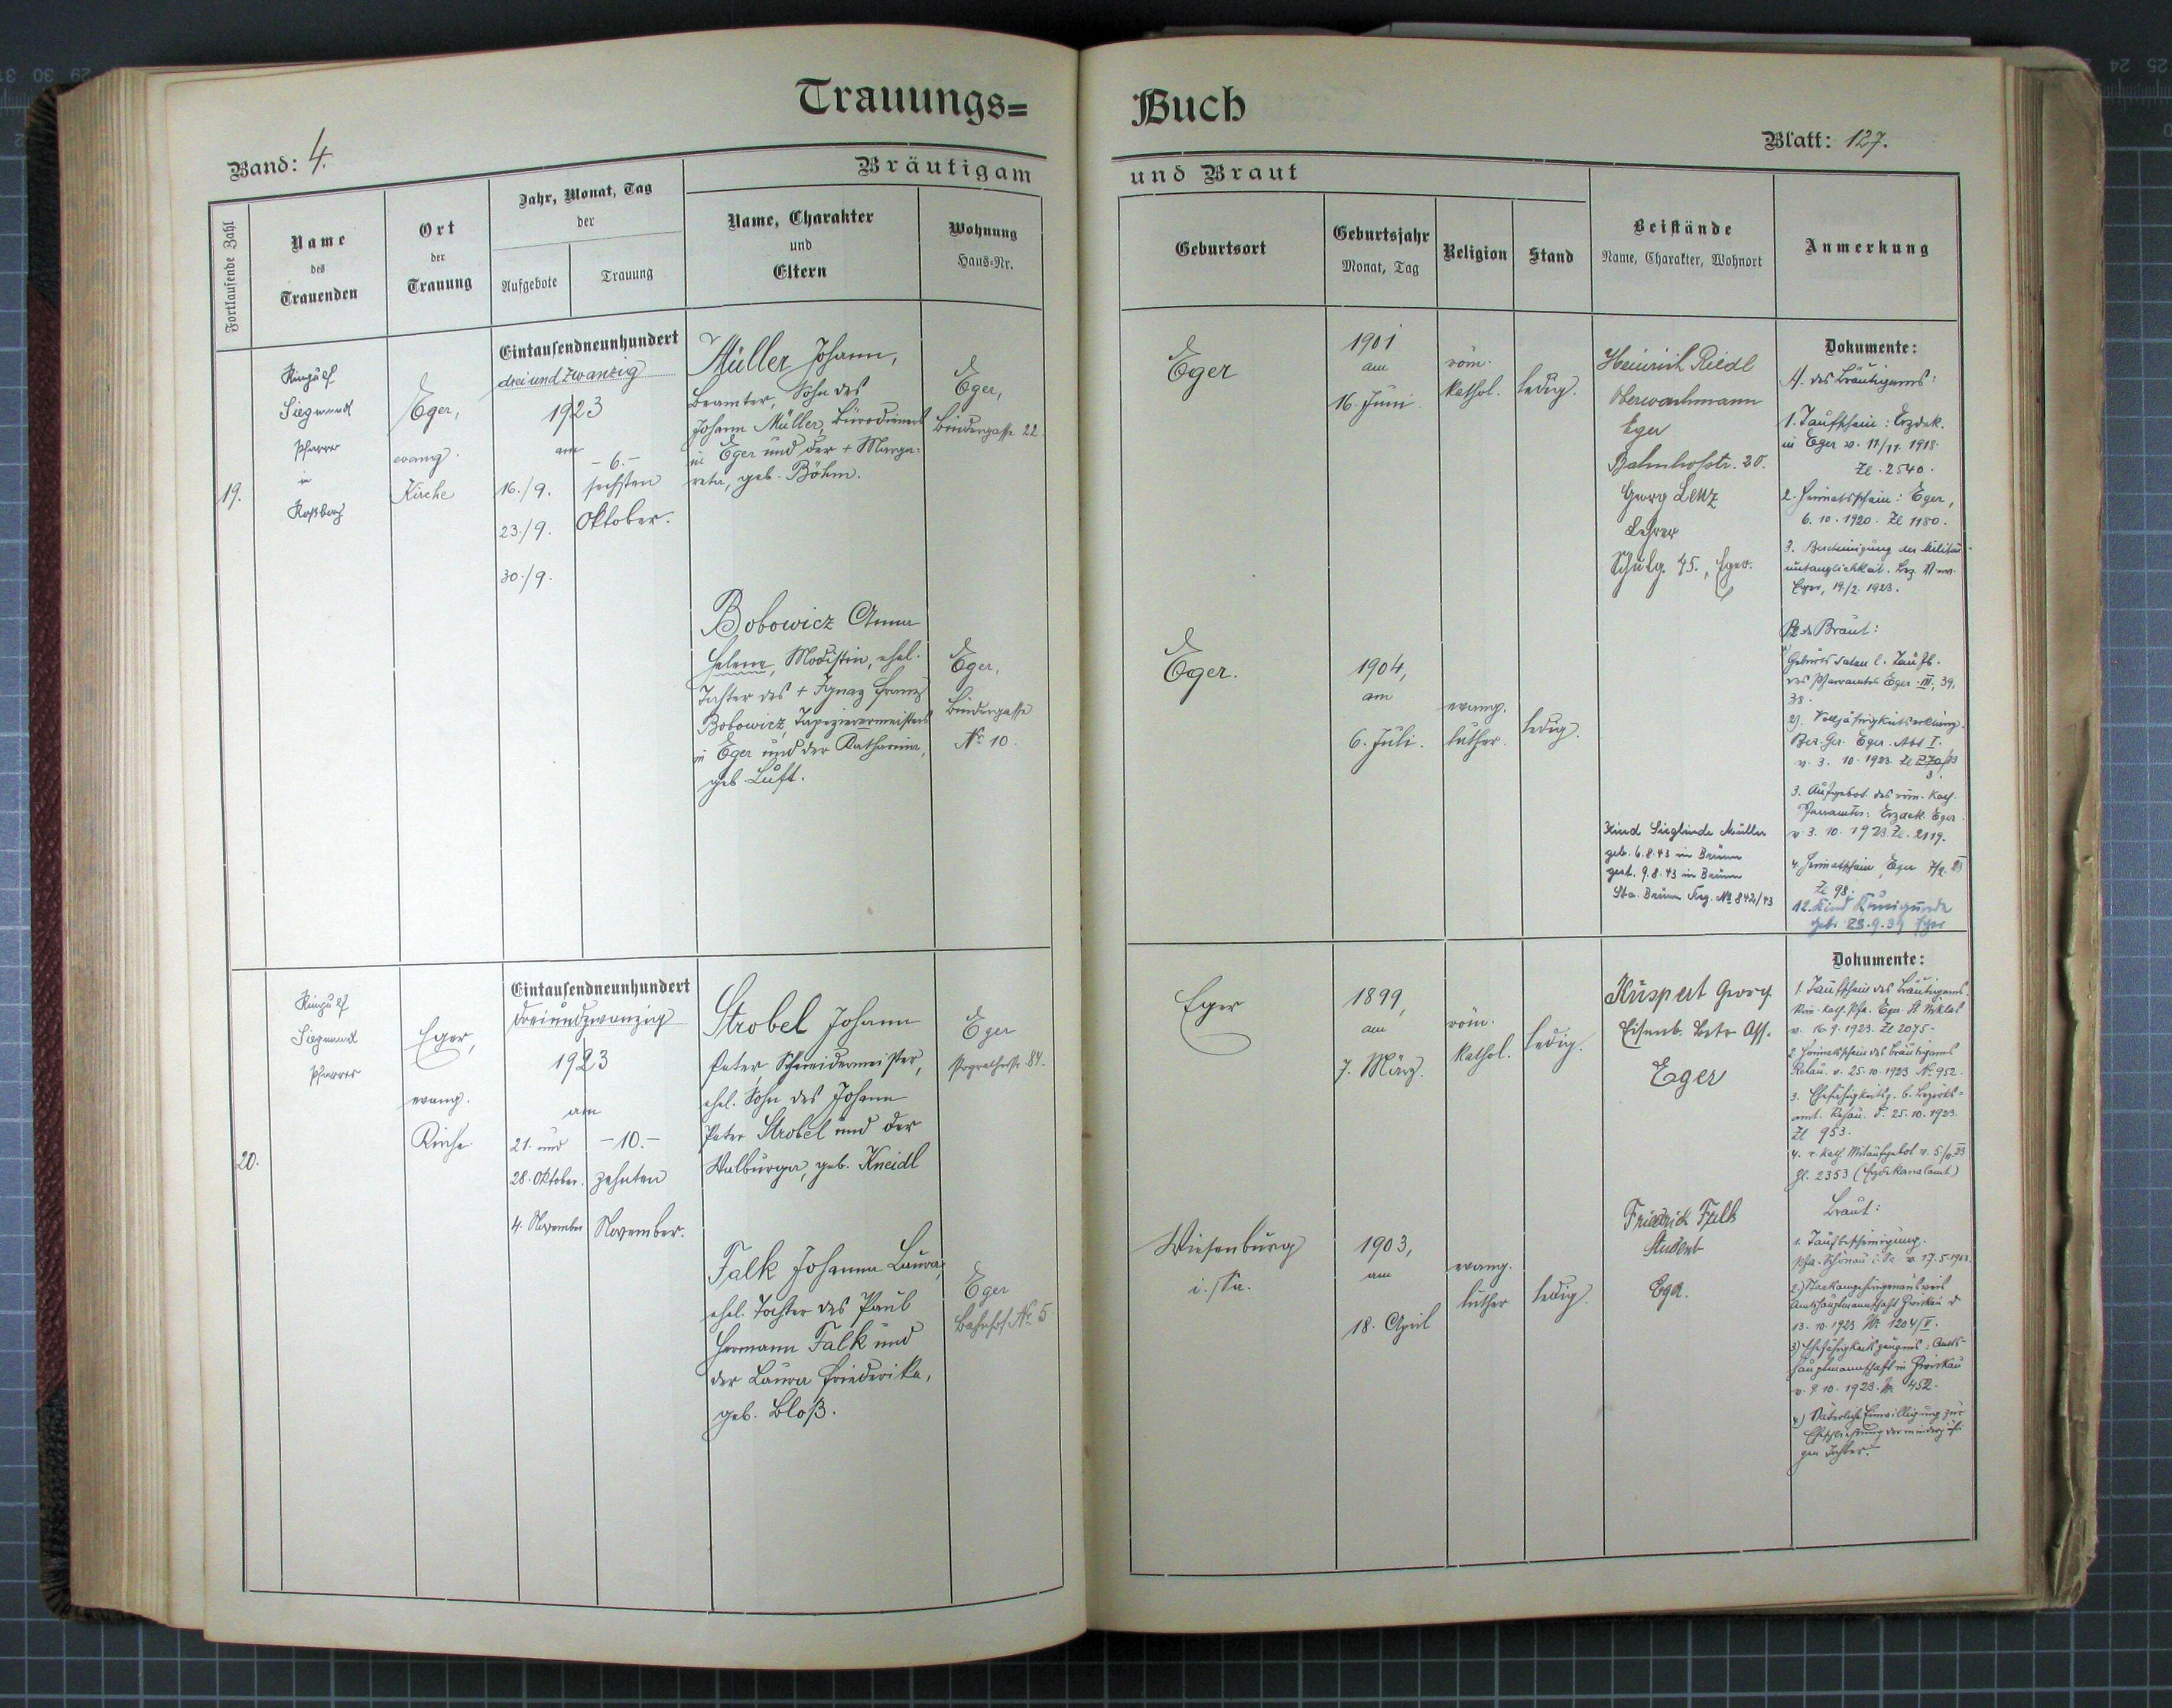 Trauungs=
Buch
Band: 4.
Blatt: 127.
Bräutigam
und Braut
Fortlaufende Zahl
Name
des
Trauenden
Ort
der
Trauung
Jahr, Monat, Tag
der
Aufgebote
Trauung
Name, Charakter
und
Eltern
Wohnung
Haus=Nr.
Geburtsort
Geburtsjahr
Monat, Tag
Religion
Stand
Beistände
Name, Charakter, Wohnort
Anmerkung
19.
Siegmund
Pfarrer
in
Roßbach
Eger,
evang.
Kirche
Eintausendneunhundert
drei und zwanzig
1923
am
16./9.
23./9.
30./9.
- 6. -
sechsten
Oktober.
Müller Johann,
Beamter, Sohn des
Johann Müller, Bürodieners
in Eger und der + Marga-
reta, geb. Böhm.
Eger,
Bindergasse 22.
Eger
1901
am
16. Juni
röm.
kathol.
ledig.
Heinrich Riedl
Oberwachmann
Eger
Bahnhofstr. 20.
Georg Lenz
Lehrer
Schulg. 45., Eger.
Dokumente:
A. des Bräutigams:
1. Taufschein: Erzdek.
in Eger v. 11/11. 1918.
Zl. 2540.
2. Heimatschein: Eger,
6. 10. 1920. Zl 1180.
3. Bescheinigung der Militär-
untauglichkeit.
Eger, 19./2. 1923.
Bobowicz Anna
Helene, Modistin, ehel.
Tochter des + Ignaz Franz
Bobowicz, Tapezierermeisters
in Eger und der Katharina,
geb. Luft.
Eger,
Bindergasse
No 10.
Eger.
1904,
am
6. Juli.
evang.
luther.
ledig.
Kind Sieglinde Müller
geb. 6.8.43 in Brünn
gest. 9.8.43 in Brünn
Sta. Brünn Reg. No 842/43
der Braut:
Geburtsdaten l. Taufb.
des Pfarramtes Eger III, 39,
38.
2). Volljährigkeitserklärung.
Bez. Ger. Eger. Abt I.
v. 3. 10. 1923.
3. Aufgebot des röm. kath.
Pfarramtes: Erzdek. Eger
v. 3. 10. 1923 Zl. 2119.
4. Heimatschein, Eger
Zl 98.
12. Kind Kunigunde
geb. 23.9.39 Eger
20.
Siegmund
Pfarrer
Eger,
evang.
Kirche.
Eintausendneunhundert
dreiundzwanzig
1923
am
21. und
28. Oktober.
4. November
- 10. -
zehnten
November.
Strobel Johann
Peter, Schneidermeister,
ehel. Sohn des Johann
Peter Strobel und der
Walburga, geb. Kneidl
Eger
84.
Eger
1899,
am
7. März.
röm.
kathol.
ledig.
Küspert Georg
Eisenb. Betr. Ass.
Eger
Dokumente:
1. Taufschein des Bräutigams.
Röm. kath. Pfa. Eger St Niklas
v. 16. 9. 1923. Zl 2075.
2. Heimatschein des Bräutigams
Rehau. v. 25. 10. 1923 No 952.
3. Ehefähigkeitsz. b. Bezirks=
amt. Rehau. d. 25. 10. 1923.
Zl 953.
4. r. kath. Mitaufgebot
Zl. 2353 (Erzdekanalamt)
Falk Johanna Laura,
ehel. Tochter des Paul
Hermann Falk und
der Laura Friederika,
geb. Bloß.
Eger
Bahnhof No 5
Wiesenburg
i. /Sa.
1903,
am
18. April
evang.
luther
ledig.
Friedrich Falk
Student
Eger.
Braut:
1. Taufbescheinigung.
Pfa. Schönau i. Sa v. 17. 5. 1903.
2.) Staatsangehörigenausweis
Amtshauptmannschaft Zwickau d
13. 10. 1923 Nr. 1204/V.
3) Ehefähigkeitszeugnis: Amts-
hauptmannschaft in Zwickau
v. 9. 10. 1923. Nr 452.
4) Väterliche Einwilligung zur
Eheschließung der minderjähri-
gen Tochter.